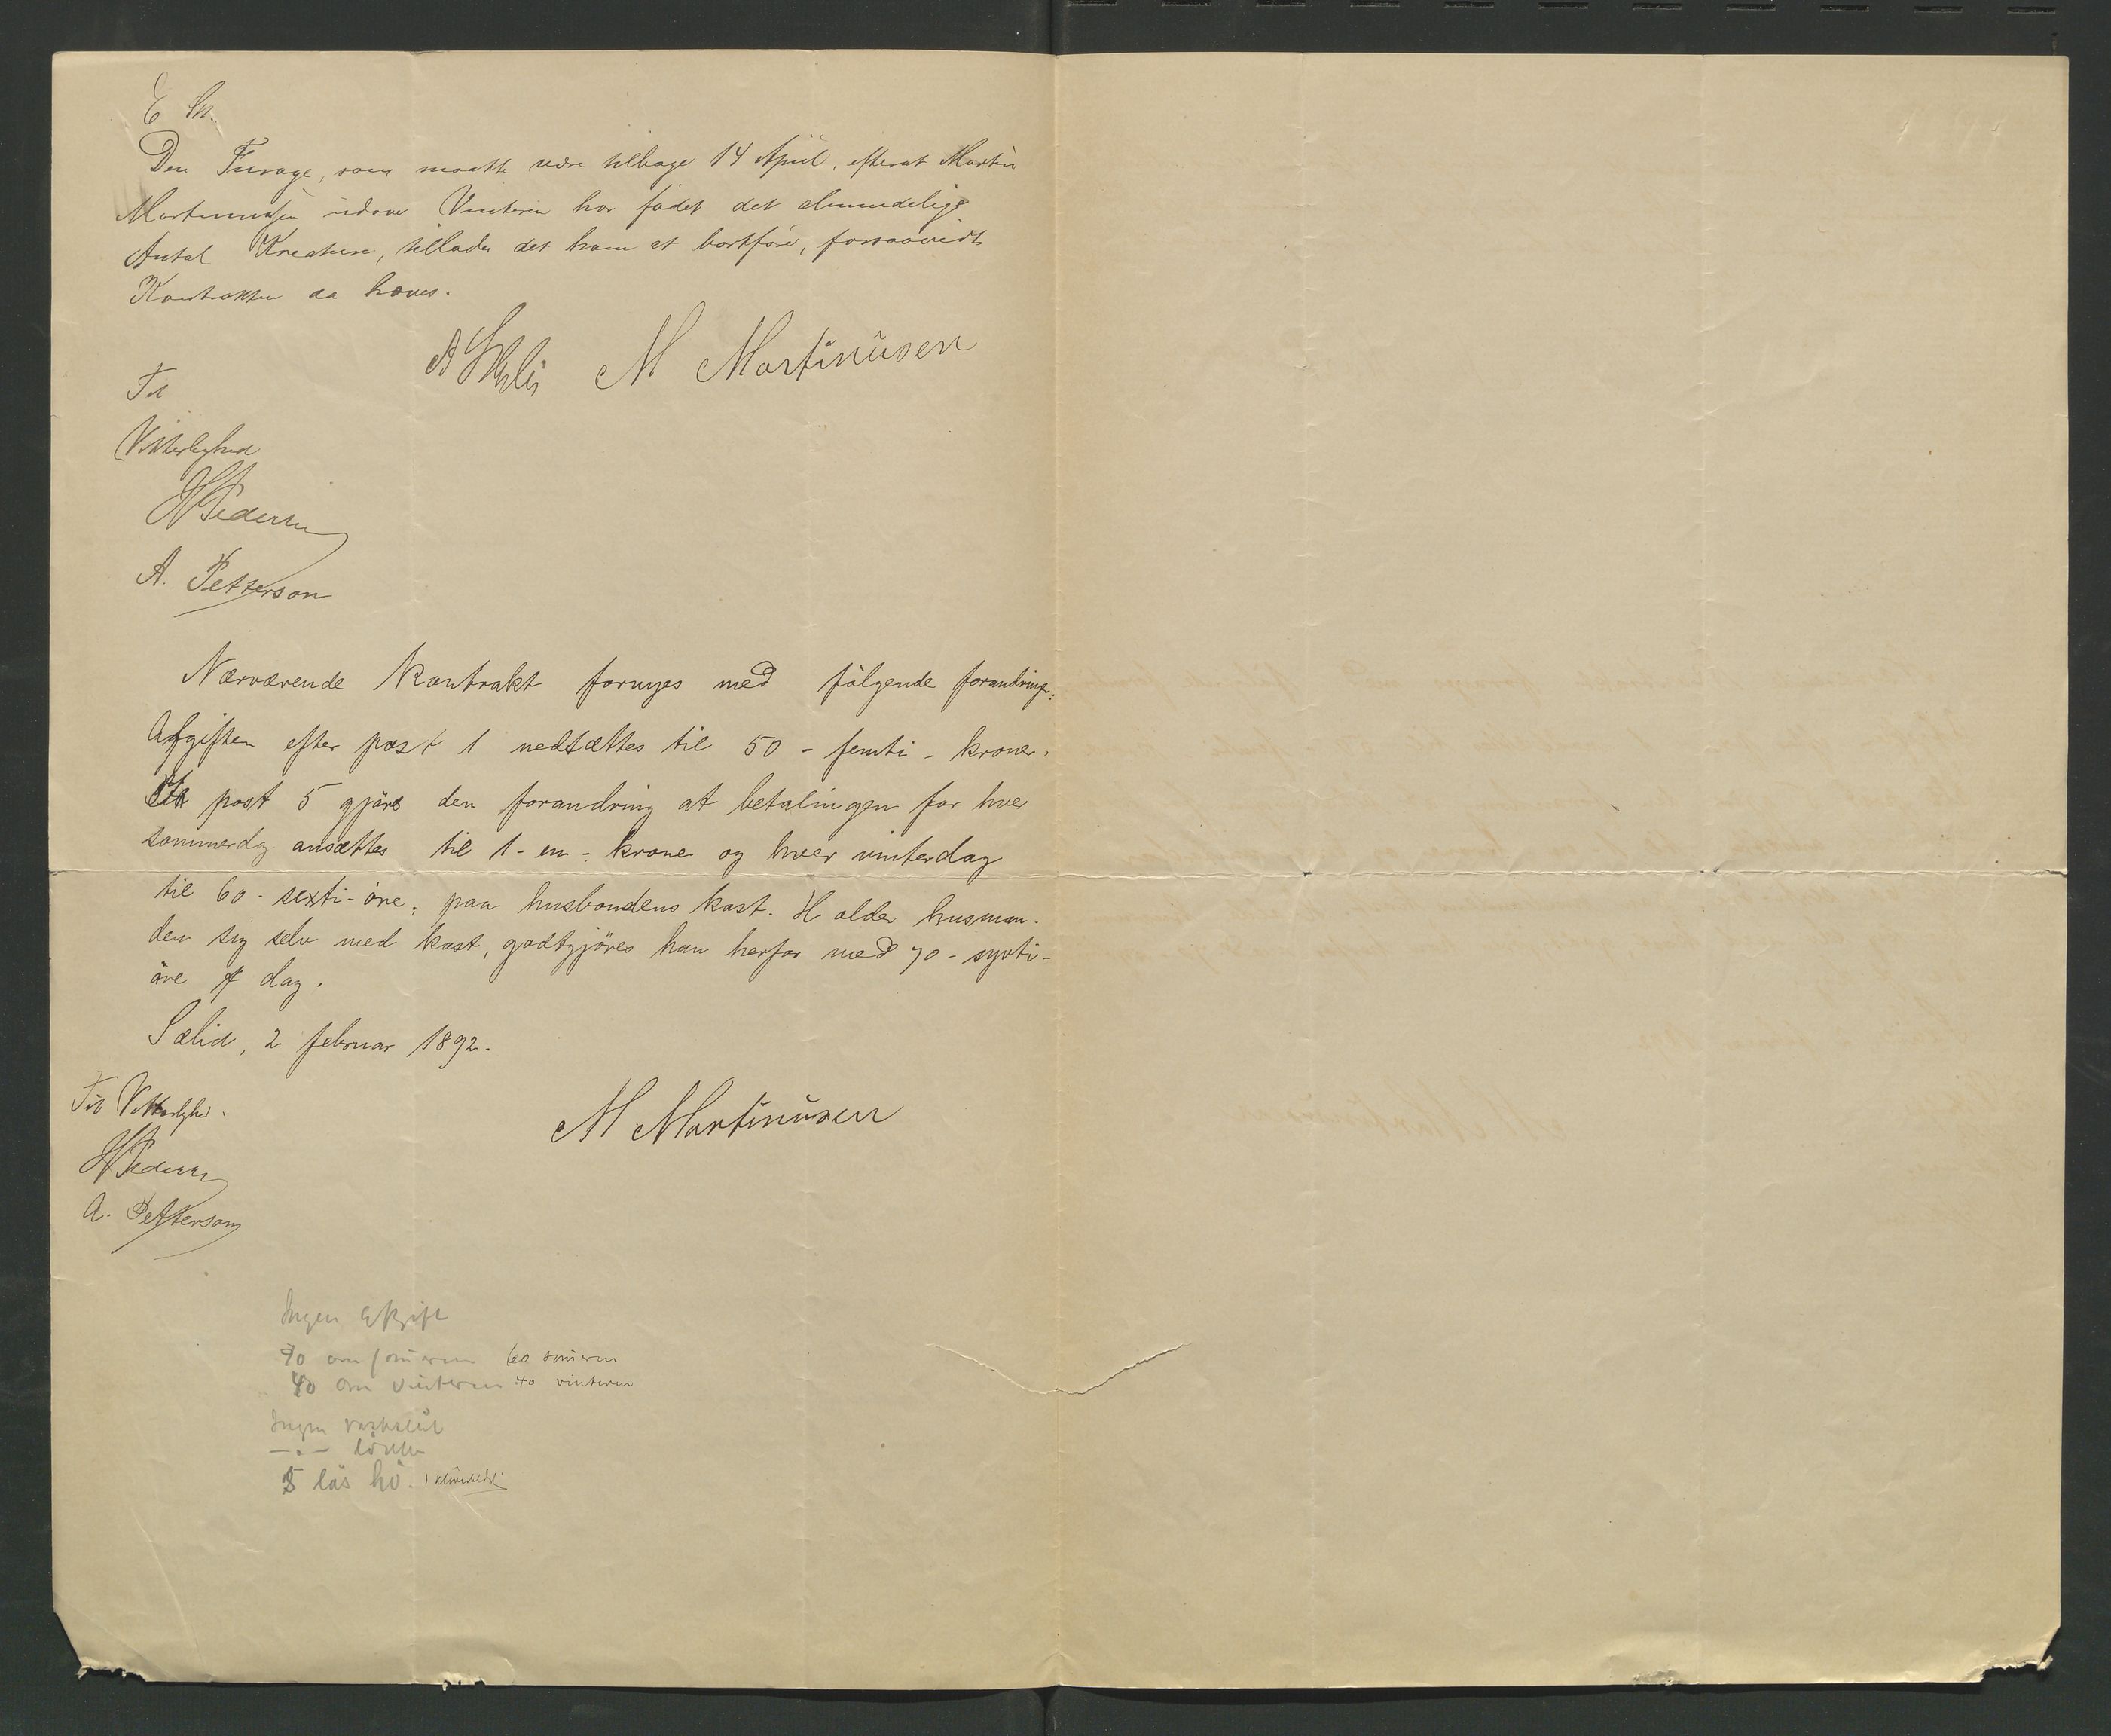 E Sk.
Den Furage, som maatte være tilbage 14 April, efterat Martin
Martinusen udover Vinteren har födet det almindelige
Antal Kreature, tillades det ham at bortföre, forsaavidt
Kontrakten da hæves.
M Martinusen
Til
Vitterlighed
HPedersen
A. Petterson
Nærværende kontrakt fornyes med fölgende forandring:
Afgiften efter post 1 nedsættes til 50 - femti - kroner.
post 5 gjöres den forandring at betalingen for hver
sommerdag ansættes til 1 - en - krone og hver vinterdag
til 60 - sexti - öre, paa husbondens kost. Holder husman-
den sig selv med kost, godtgjöres han herfor med 70 - sytti -
öre pr dag.
Sælid, 2 februar 1892.
Til Vitterlighed.
M Martinusen
HPedersen
A. Petterson
Ingen afgift
70 om sommeren 60 sommeren
40 om vinteren 40 vinteren
Ingen
5 läs hö. 1